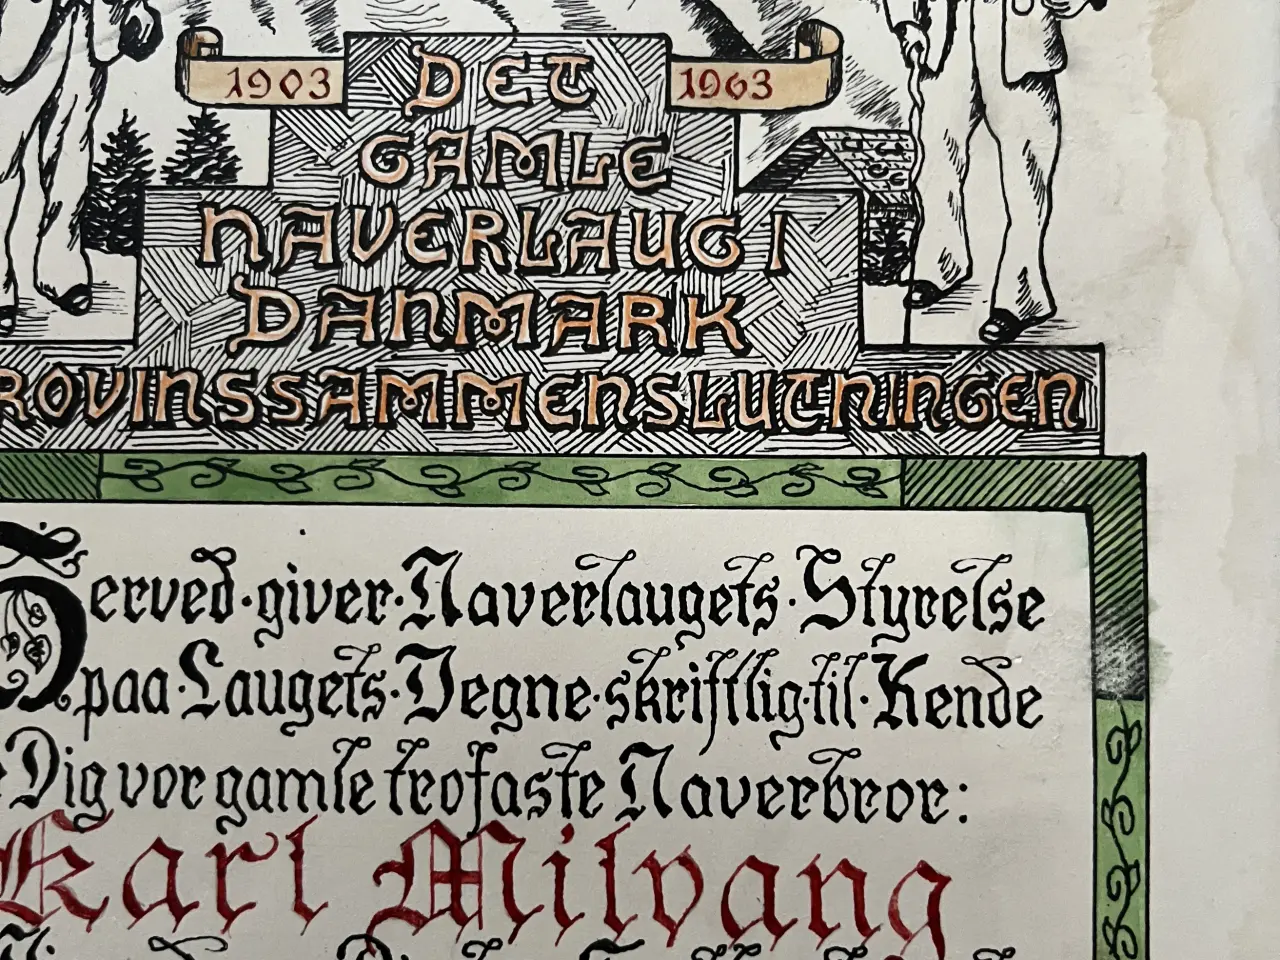 1903 DET 1963
GAMLE
NAVERLAUG I
DANMARK
ROVINSSAMMENSLUTNINGEN
Herved · giver · Naverlaugets · Styrelse
paa · Laugets · Vegne · skriftlig · til · Kende
Dig vor gamle trofaste Naverbror:
Karl Milvang